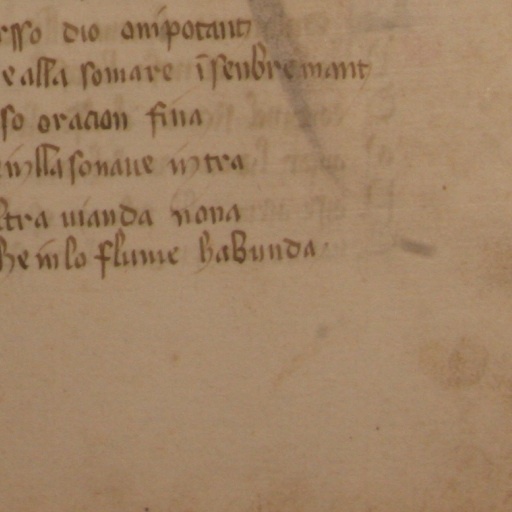 esso dio onipotant
e alla somare īsenbremant
so oracion fina
inlla sonaue intra
ltra uianda nona
he in lo flume habunda